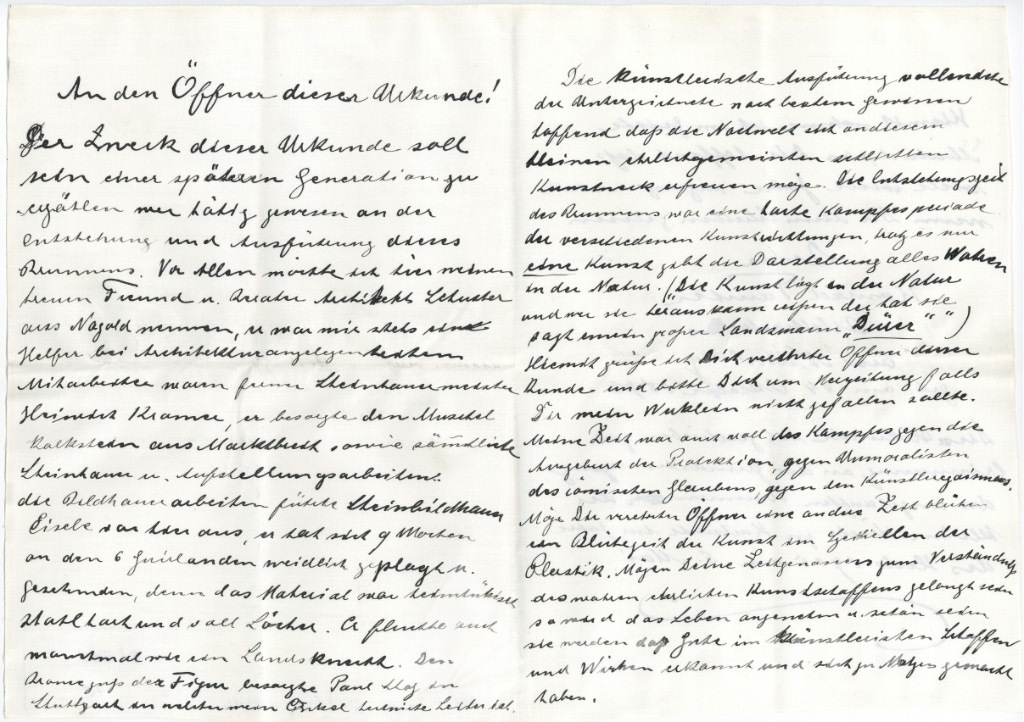 An den Öffner dieser Urkunde!
Der Zweck dieser Urkunde soll
sein einer späteren Generation zu
erzählen wer tätig gewesen an der
Entstehung und Ausführung dieses
Brunnens. Vor Allem möchte ich hier meinen
treuen Freund u. Berater Architekt Schuster
aus Nagold nennen, er war mir stets ein
Helfer bei Architekturangelegenheiten
Mitarbeiter waren ferner Steinhauermeister
Heinrich Kramer, er besorgte den Muschel
kalkstein aus Marktbreit sowie sämtliche
Steinhauer u. Aufstellungsarbeiten.
die Bildhauerarbeiten führte Steinbildhauer
Eisele von hier aus, er hat sich 9 Wochen
an den 6 Guirlanden weidlich geplagt u.
geschunden, denn das Material war heimtükisch
stahlhart und voll Löcher. Er fluchte auch
manchmal wie ein Landsknecht. Den
Bronceguss der Figur besorgte Paul Stotz in
Stuttgart in welcher mein Onkel technische Leiter ist.
Die künstlerische Ausführung vollendete
der Unterzeichnete nach bestem Gewissen
hoffend daß die Nachwelt sich an diesem
kleinen ehrlichgemeinten schlichten
Kunstwerk erfreuen möge. Die Entstehungszeit
des Brunnens war eine harte Kampfesperiode
der verschiedenen Kunstrichtungen, trotz es nur
eine Kunst gibt die Darstellung alles Wahren
in der Natur. (Die Kunst liegt in der Natur
und wer sie "herauskann reißen der hat sie"
sagt unser großer Landsmann "Dürer")
Hiermit grüße ich Dich verehrter Öffner dieser
Kunde und bitte Dich um Verzeihung falls
Dir mein Werklein nicht gefallen sollte.
Meine Zeit war auch voll des Kampfes gegen die
Ausgeburt der Protektion, gegen Unmoralisten
des römischen Glaubens, gegen den Künstleregoismus.
Möge Dir verehrter Öffner eine andere Zeit blühen
ein Blütezeit der Kunst im Speziellen der
Plastik. Mögen Deine Zeitgenossen zum Verständnis
des wahren ehrlichen Kunstschaffens gelangt sein
so wird das Leben angenehm u. schön sein
sie werden das Gute im künstlerischen Schaffen
und Wirken erkannt und sich zu Nutzen gemacht
haben.